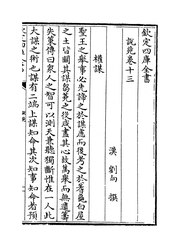 欽定四庫全書
說苑卷十三
漢 劉向 撰
權謀
聖王之舉事必先諦之於謀慮而後考之於蓍龜白屋
之士皆關其謀芻蕘之役咸盡其心故萬舉而無遺籌
失策傳曰衆人之智可以測天兼聽獨斷惟在一人此
大謀之術也謀有二端上謀知命其次知事知命者預